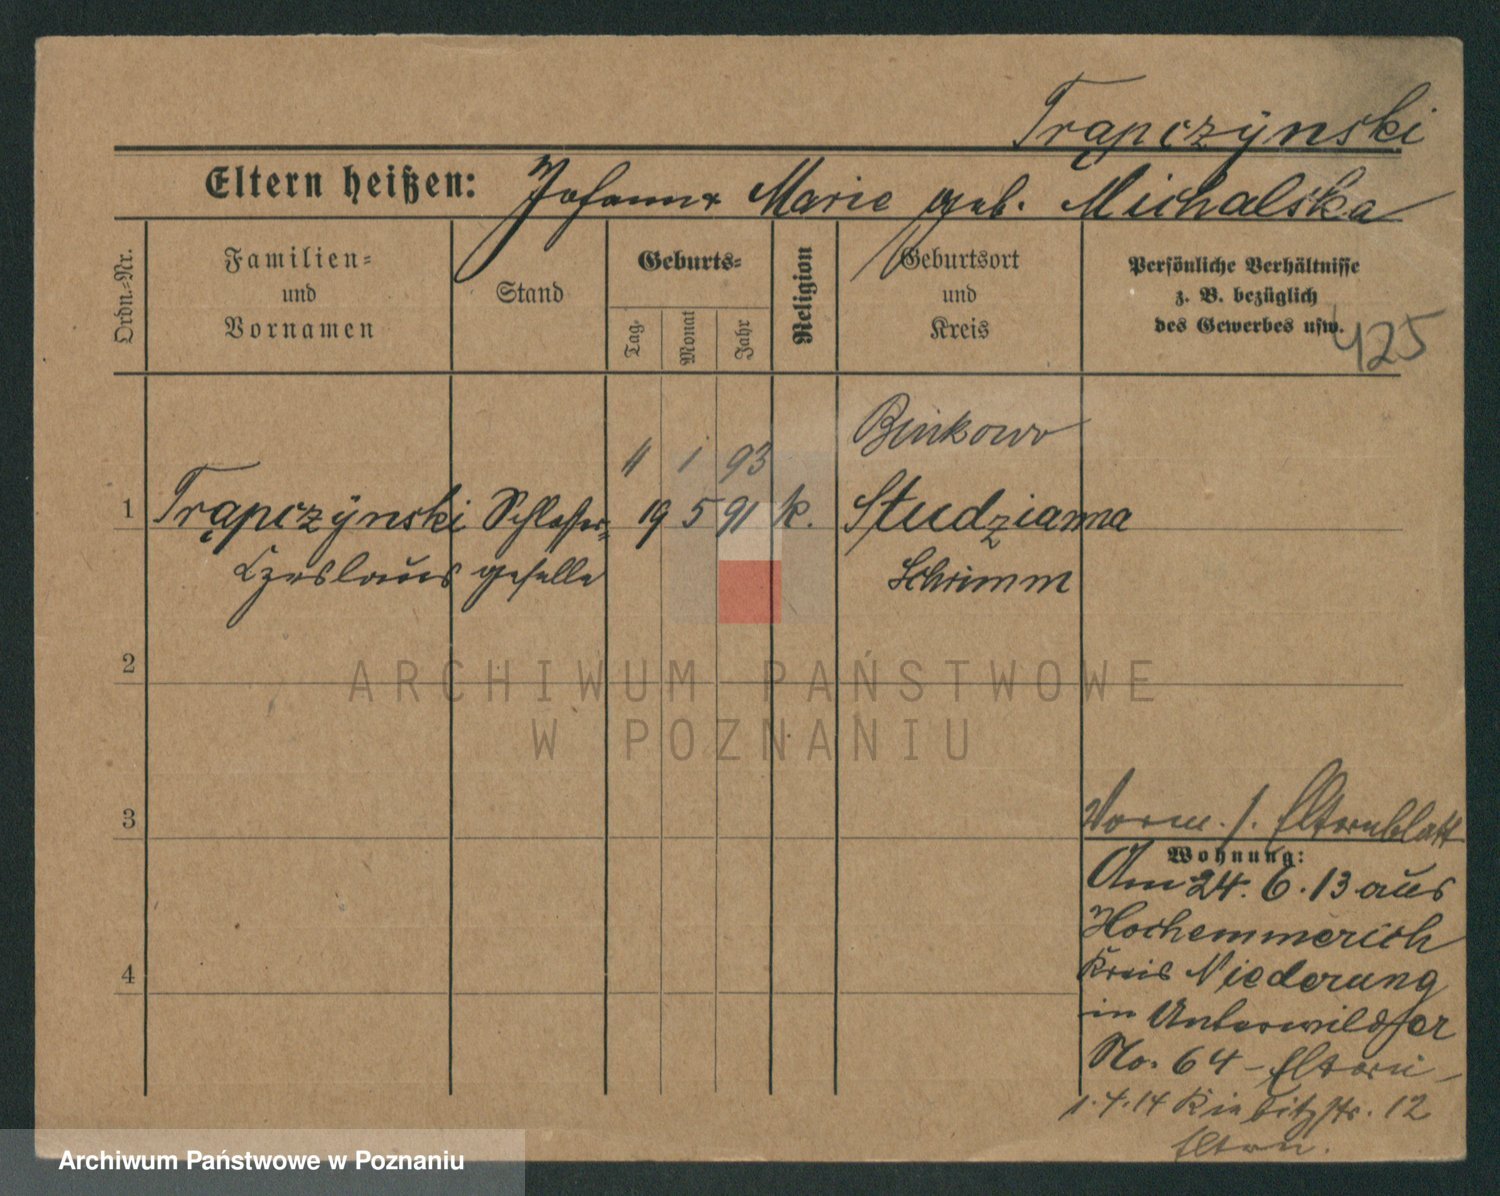 Trąpczÿnski
Eltern heißen: Johann + Marie geb. Michalska
Ordn.-Nr.
Familien-
und
Vornamen
Stand
Geburts-
Tag-
Monat
Jahr
Religion
Geburtsort
und
Kreis
Persönliche Verhältnisse
z. B. bezüglich
des Gewerbes usw.
425
Binkowo
11 1 93
1 Trąpczÿnski Schlosser- 19 5 91 k. Studzianna
Czeslaus geselle Schrimm
2
ARCHIWUM PAŃSTWOWE
W POZNANIU
3
Vorm. s. Elternblatt
Wohnung:
Am 24. 6. 13 aus
Hochemmerich
Kreis Niederung
in Unterwilda
No. 64 - Eltern -
4
1.4.14 Kiebitzstr. 12
Eltern.
Archiwum Państwowe w Poznaniu